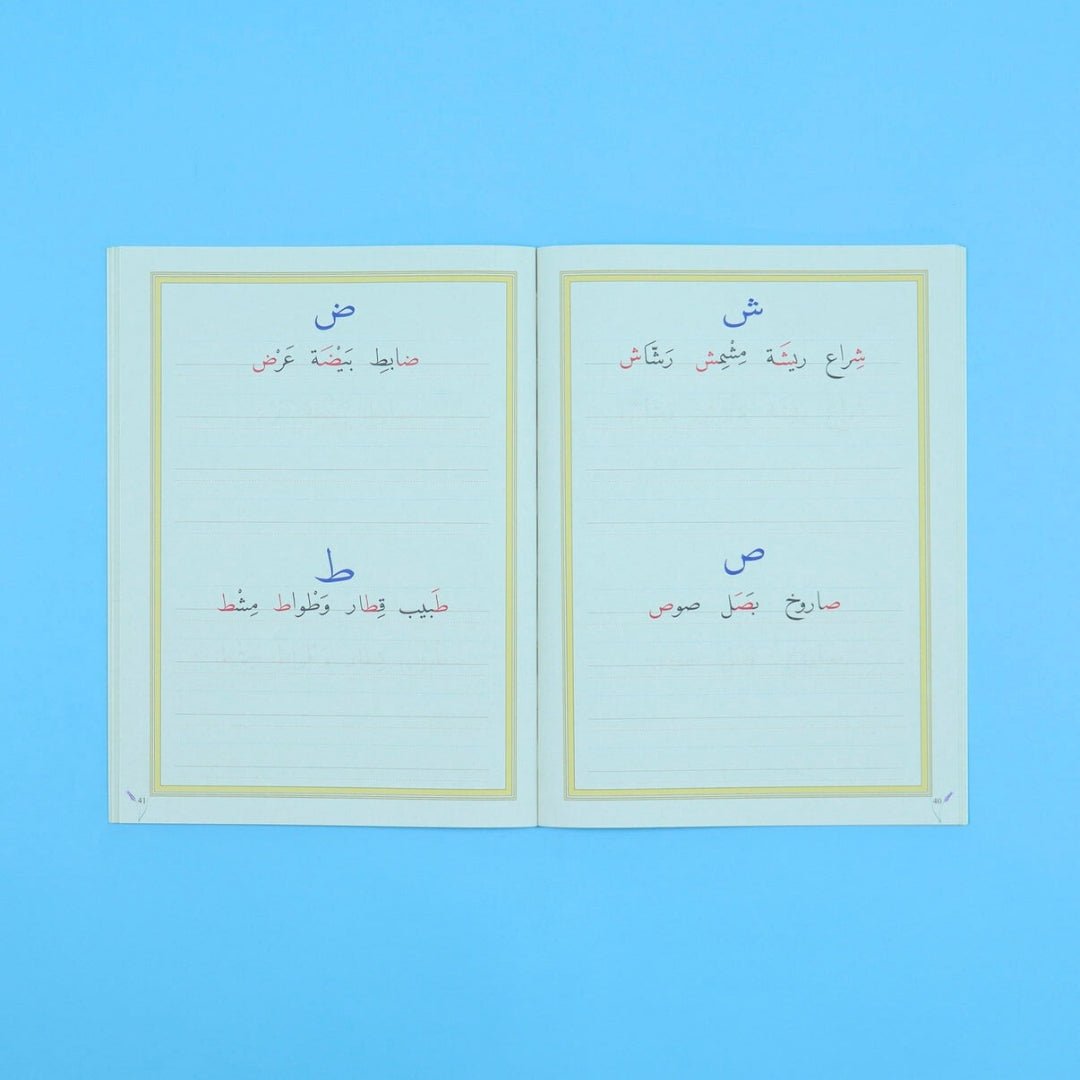 ش
شِراع ريشَة مِشْمِش رَشّاش
ص
صاروخ بَصَل صوص
40
ض
ضابِط بَيْضَة عَرْض
ط
طَبيب قِطار وَطْواط مِشْط
41